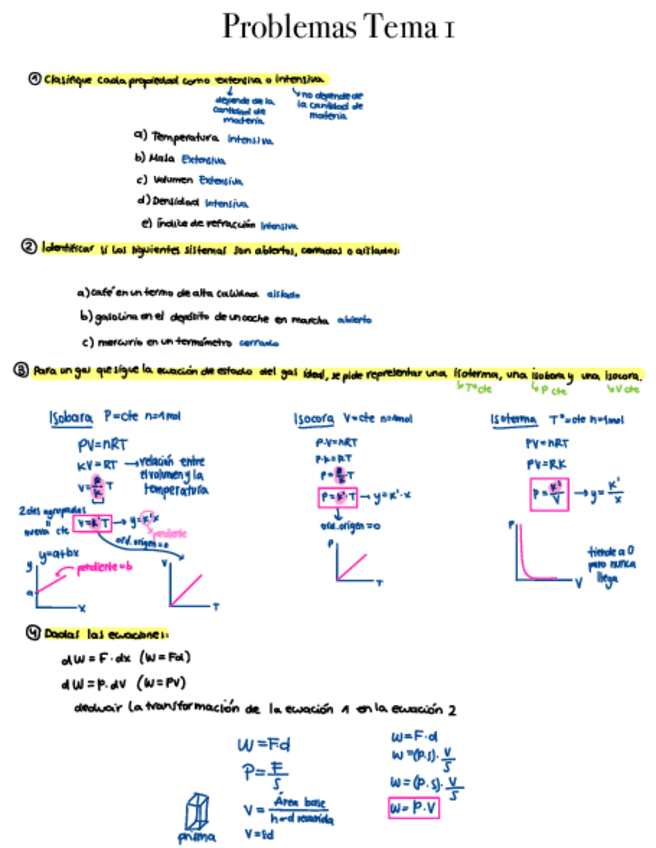 Problemas Tema 1
① Clasifique cada propiedad como extensiva o intensiva
depende de la cantidad de materia
no depende de la cantidad de materia
a) Temperatura Intensiva
b) Masa Extensiva
c) Volumen Extensiva
d) Densidad Intensiva
e) Índice de refracción Intensiva
② Identificar si los siguientes sistemas son abiertos, cerrados o aislados:
a) café en un termo de alta calidad aislado
b) gasolina en el depósito de un coche en marcha abierto
c) mercurio en un termómetro cerrado
③ Para un gas que sigue la ecuación de estado del gas ideal, se pide representar una isoterma, una isobara y una isocora.
Tª cte
P cte
V cte
Isobara P=cte n=1mol
PV=nRT
KV=RT → relación entre el volumen y la temperatura
V=R/K T
2 ctes agrupadas
nueva cte
V=K'T → y=K'x
pendiente
ord. origen=0
y=a+bx
pendiente=b
y
a
x
V
T
Isocora V=cte n=1mol
P.V=nRT
P.K=RT
P=R/K.T
P=K'.T → y=K'.x
ord. origen=0
P
T
Isoterma Tª=cte n=1mol
PV=nRT
PV=RK
P=K'/V → y=K'/x
P
V
tiende a 0
pero nunca
llega
④ Dadas las ecuaciones:
dW=F.dx (W=Fd)
dW=P.dV (W=PV)
deducir la transformación de la ecuación 1 en la ecuación 2
W=Fd
P=F/S
V=Área base/h=d recorrida
V=Sd
prisma
W=F.d
W=(P.S).V/S
W=(P.S).V/S
W=P.V